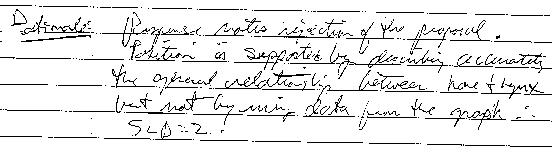 Rationale: Response notes rejection of the proposal.
Position is supported by describing accurately
the general relationship between hare & lynx
but not by using data from the graph ∴
SLD = 2.